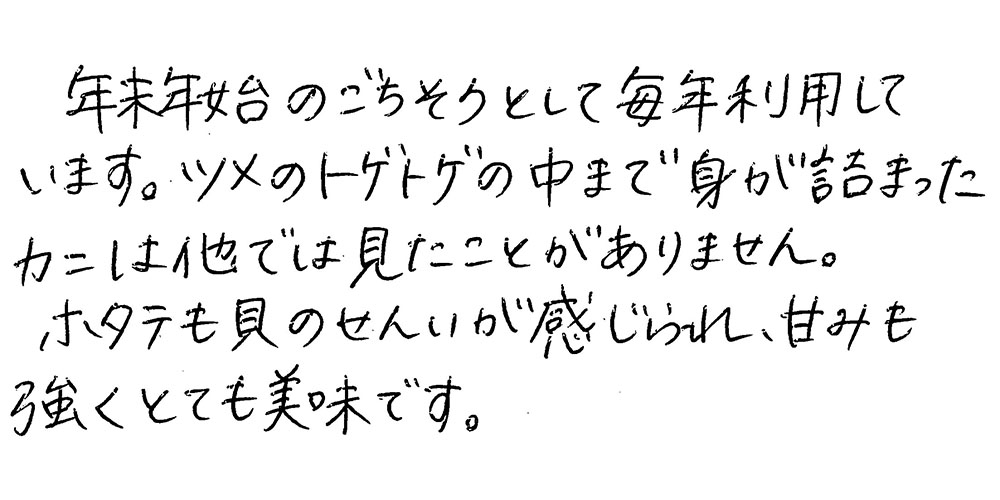 年末年始のごちそうとして毎年利用して
います。ツメのトゲトゲの中まで身が詰まった
カニは他では見たことがありません。
ホタテも貝のせんいが感じられ、甘みも
強くとても美味です。